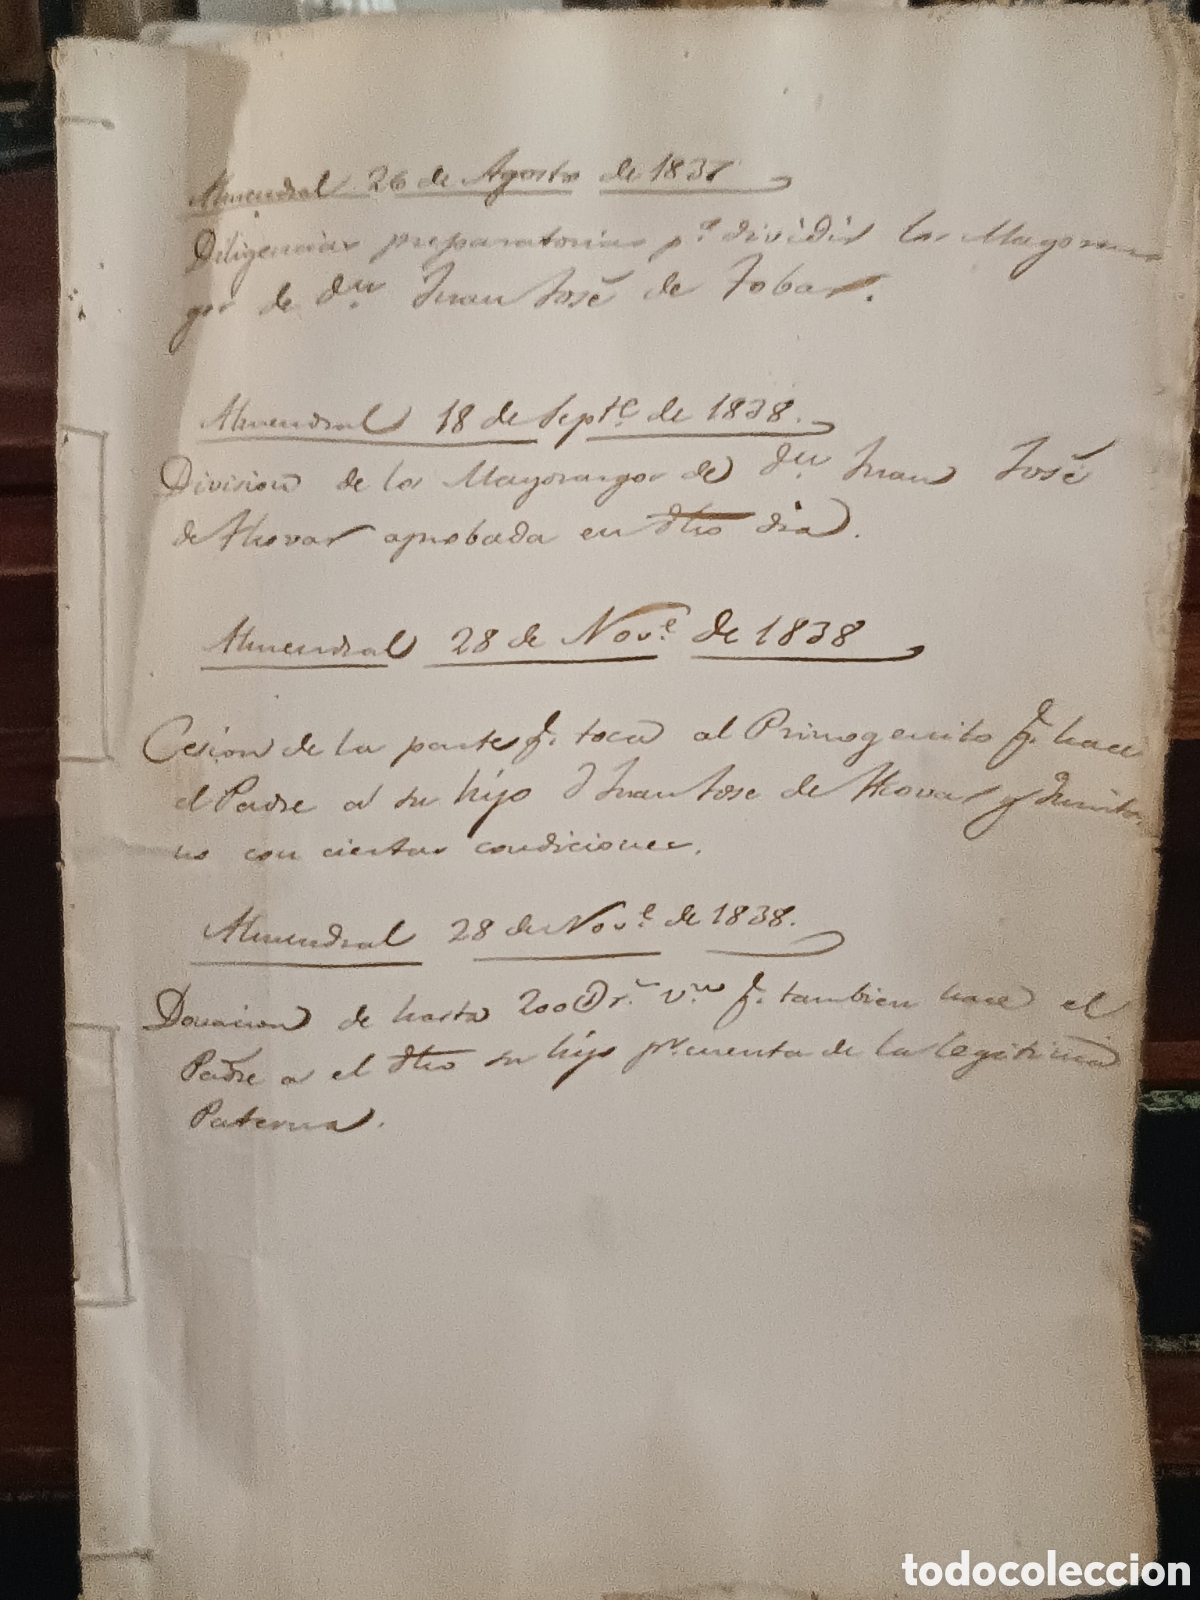 Almendral 26 de Agosto de 1838
Diligencias preparatorias pª dividir los Mayoraz
gos de dn. Juan José de Tobar.
Almendral 18 de Septe. de 1838.
Division de los Mayorazgos de dn. Juan José
de Thovar aprobada en dho dia.
Almendral 28 de Nove. de 1838
Cesion de la parte q. toca al Primogenito q. hace
el Padre a su hijo D Juan Jose de Thovar y
no con ciertas condiciones.
Almendral 28 de Nove. de 1838.
Donacion de hasta 200@ rs. vn. q. tambien hace el
Padre a el dho su hijo pr. cuenta de la legitima
Paterna.
todocoleccion